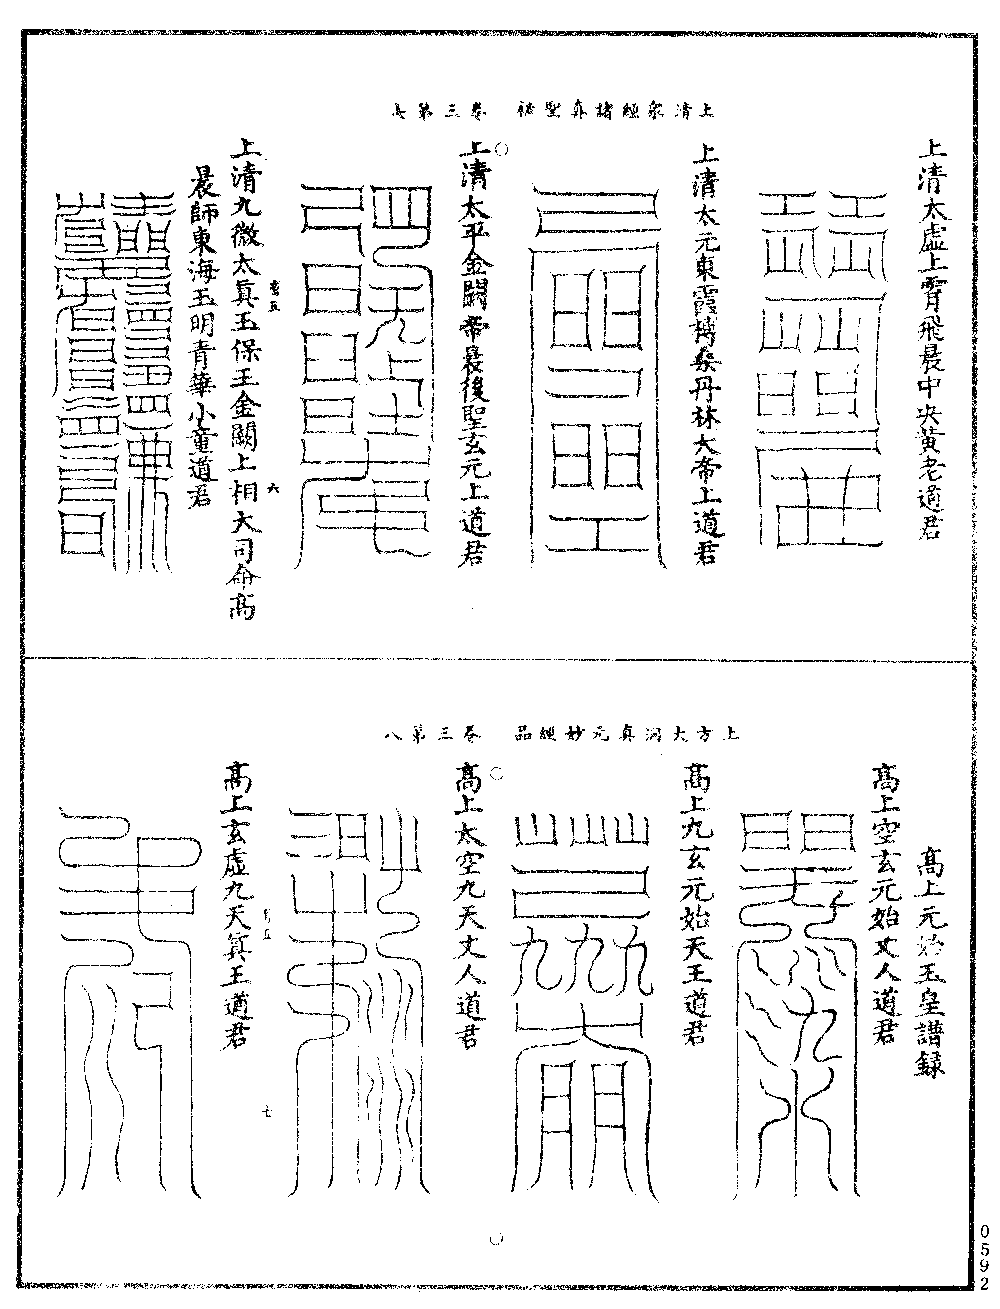 上清眾經諸真聖秘　卷三第七
上清太虛上霄飛晨中央黃老道君
上清太元東霞搏桑丹林大帝上道君
上清太平金闕帝晨後聖玄元上道君
上清九微太真玉保王金闕上相大司命高
晨師東海玉明青華小童道君
卷五
六
上方大洞真元妙經品　卷三第八
高上元始玉皇譜録
高上空玄元始丈人道君
高上九玄元始天王道君
高上太空九天丈人道君
高上玄虛九天真王道君
卷五
七
0592